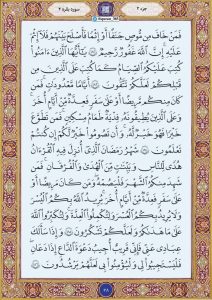 جزء ۲
سورة بقرة ۲
فَمَنْ خَافَ مِن مُّوصٍ جَنَفًا أَوْ إِثْمًا فَأَصْلَحَ بَيْنَهُمْ فَلَا إِثْمَ
عَلَيْهِ إِنَّ اللَّهَ غَفُورٌ رَّحِيمٌ ﴿١٨٢﴾ يَا أَيُّهَا الَّذِينَ آمَنُوا
كُتِبَ عَلَيْكُمُ الصِّيَامُ كَمَا كُتِبَ عَلَى الَّذِينَ مِن
قَبْلِكُمْ لَعَلَّكُمْ تَتَّقُونَ ﴿١٨٣﴾ أَيَّامًا مَّعْدُودَاتٍ فَمَن
كَانَ مِنكُم مَّرِيضًا أَوْ عَلَىٰ سَفَرٍ فَعِدَّةٌ مِّنْ أَيَّامٍ أُخَرَ
وَعَلَى الَّذِينَ يُطِيقُونَهُ فِدْيَةٌ طَعَامُ مِسْكِينٍ فَمَن تَطَوَّعَ
خَيْرًا فَهُوَ خَيْرٌ لَّهُ وَأَن تَصُومُوا خَيْرٌ لَّكُمْ إِن كُنتُمْ
تَعْلَمُونَ ﴿١٨٤﴾ شَهْرُ رَمَضَانَ الَّذِي أُنزِلَ فِيهِ الْقُرْآنُ
هُدًى لِّلنَّاسِ وَبَيِّنَاتٍ مِّنَ الْهُدَىٰ وَالْفُرْقَانِ فَمَن
شَهِدَ مِنكُمُ الشَّهْرَ فَلْيَصُمْهُ وَمَن كَانَ مَرِيضًا أَوْ
عَلَىٰ سَفَرٍ فَعِدَّةٌ مِّنْ أَيَّامٍ أُخَرَ يُرِيدُ اللَّهُ بِكُمُ الْيُسْرَ
وَلَا يُرِيدُ بِكُمُ الْعُسْرَ وَلِتُكْمِلُوا الْعِدَّةَ وَلِتُكَبِّرُوا اللَّهَ
عَلَىٰ مَا هَدَاكُمْ وَلَعَلَّكُمْ تَشْكُرُونَ ﴿١٨٥﴾ وَإِذَا سَأَلَكَ
عِبَادِي عَنِّي فَإِنِّي قَرِيبٌ أُجِيبُ دَعْوَةَ الدَّاعِ إِذَا دَعَانِ
فَلْيَسْتَجِيبُوا لِي وَلْيُؤْمِنُوا بِي لَعَلَّهُمْ يَرْشُدُونَ ﴿١٨٦﴾
٢٨